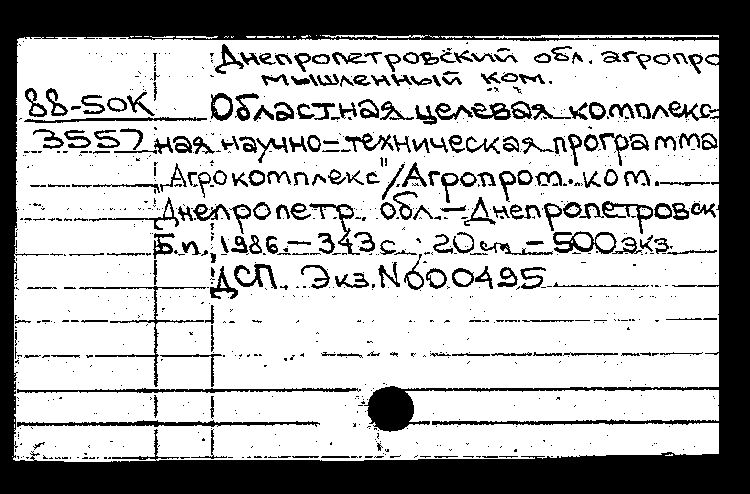 Днепропетровский обл. агропро
мышленный ком.
88-50К
3557
Областная целевая комплекс-
ная научно-техническая программа
"Агрокомплекс"/Агропром. ком.
Днепропетр. обл.-Днепропетровск
Б.п., 1986.-343с.; 20см.-500экз.
ДСП. Экз.N000495.